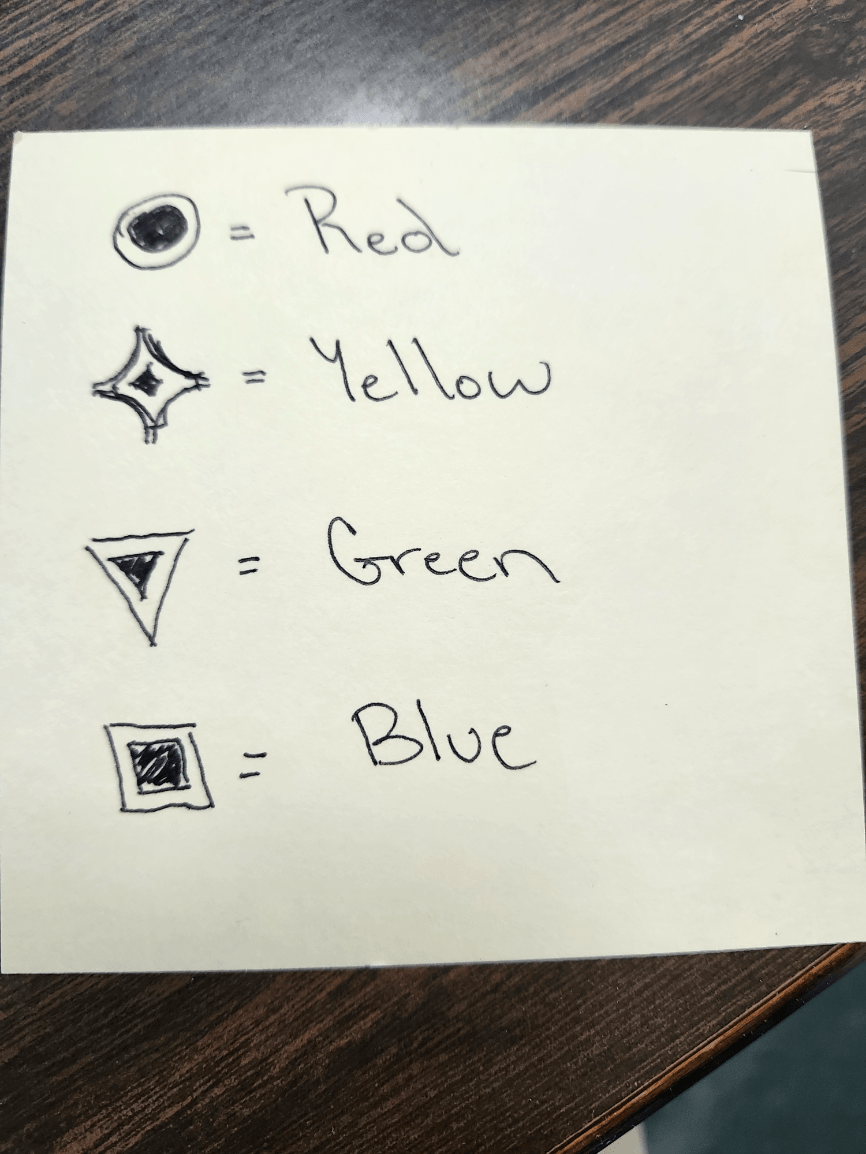 = Red
= Yellow
= Green
= Blue